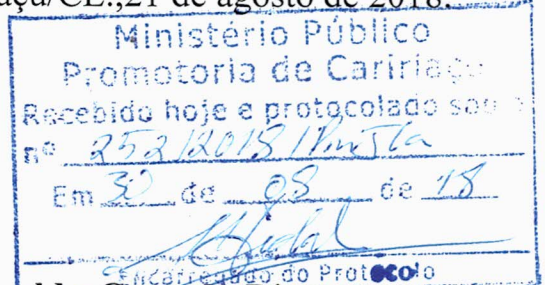 açu/CE.,21 de agosto de 2018.
Ministério Público
Promotoria de Caririaçu
Recebido hoje e protocolado sob o
nº 252/2018/
Em 30 de 08 de 18
Encarregado do Protocolo